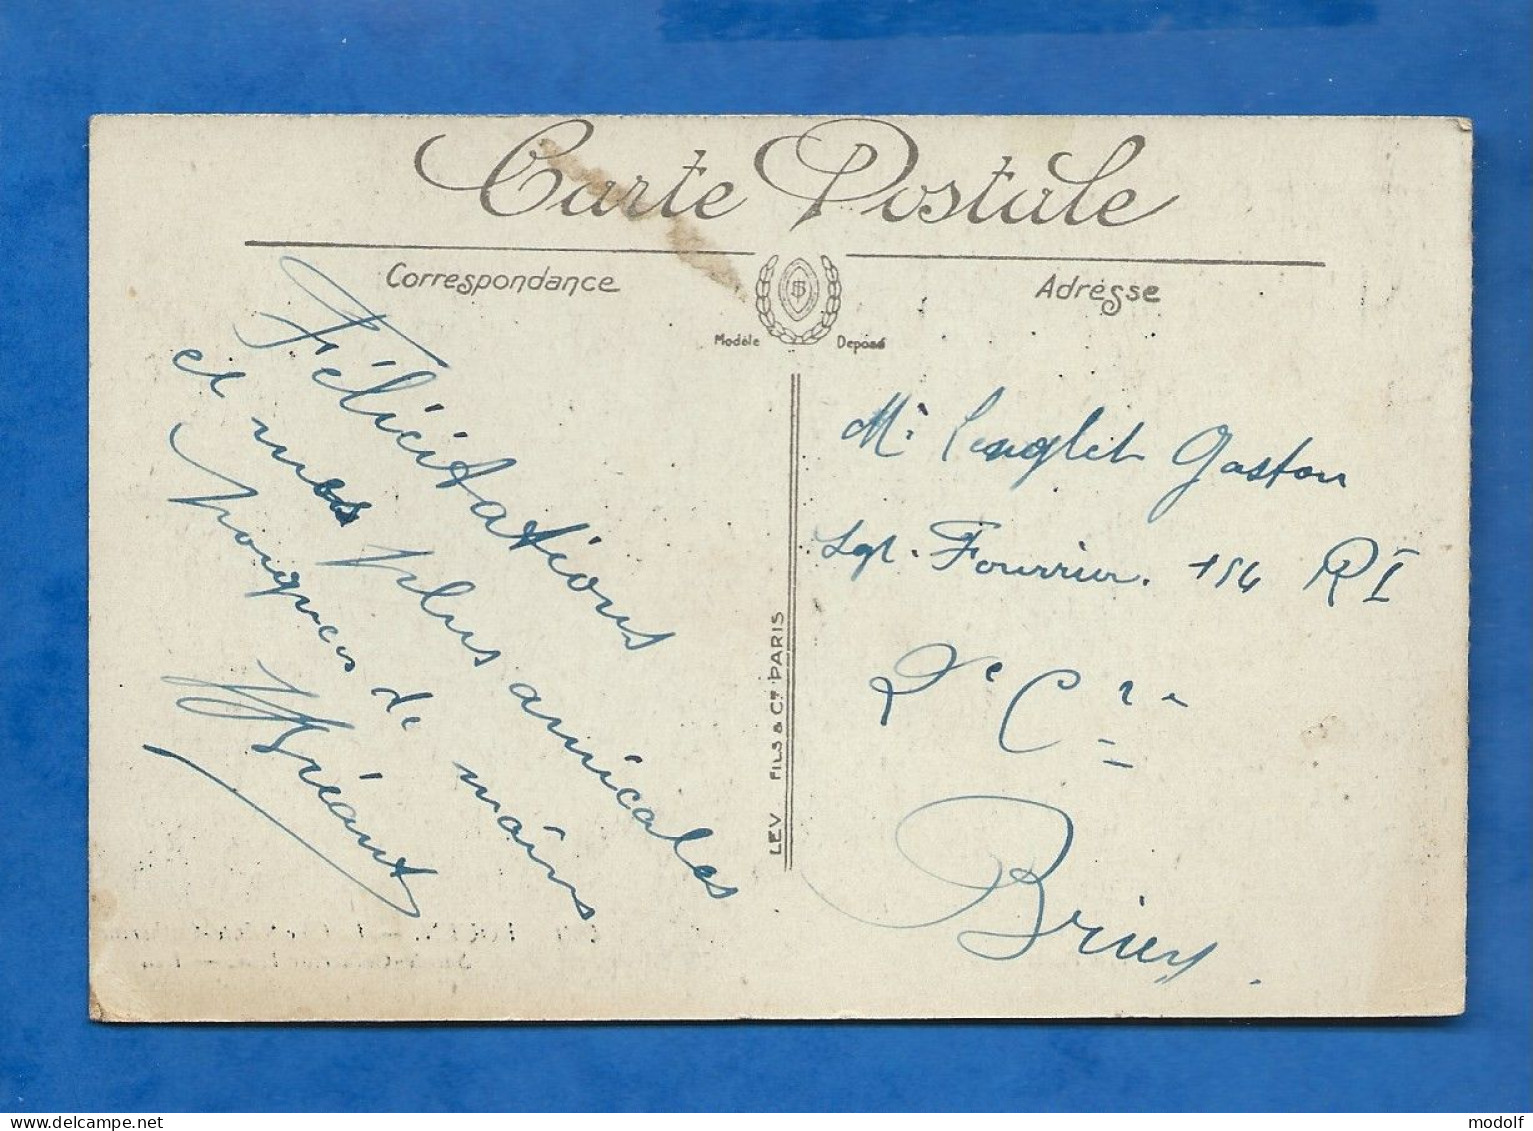 Carte Postale
Correspondance
Adresse
Modèle Déposé
Félicitations
et mes plus amicales
poignées de mains
Mr Lenglet Gaston
Sgt. Fourrier. 154 RI
2e Cie
Briey.
LEV FILS & Cie PARIS
www.delcampe.net
modolf